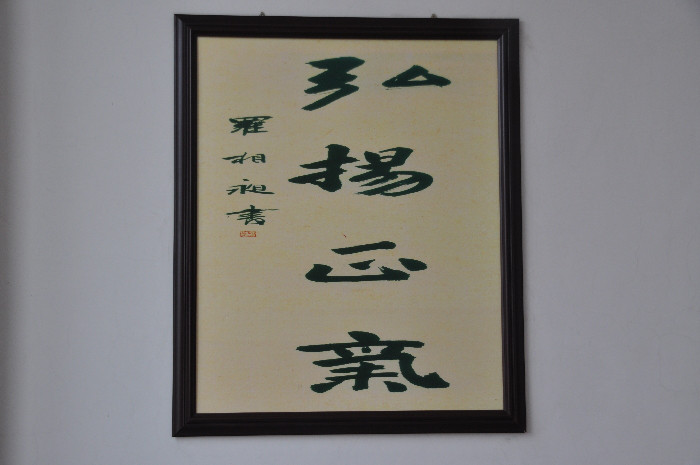 弘揚正氣
羅相昶書